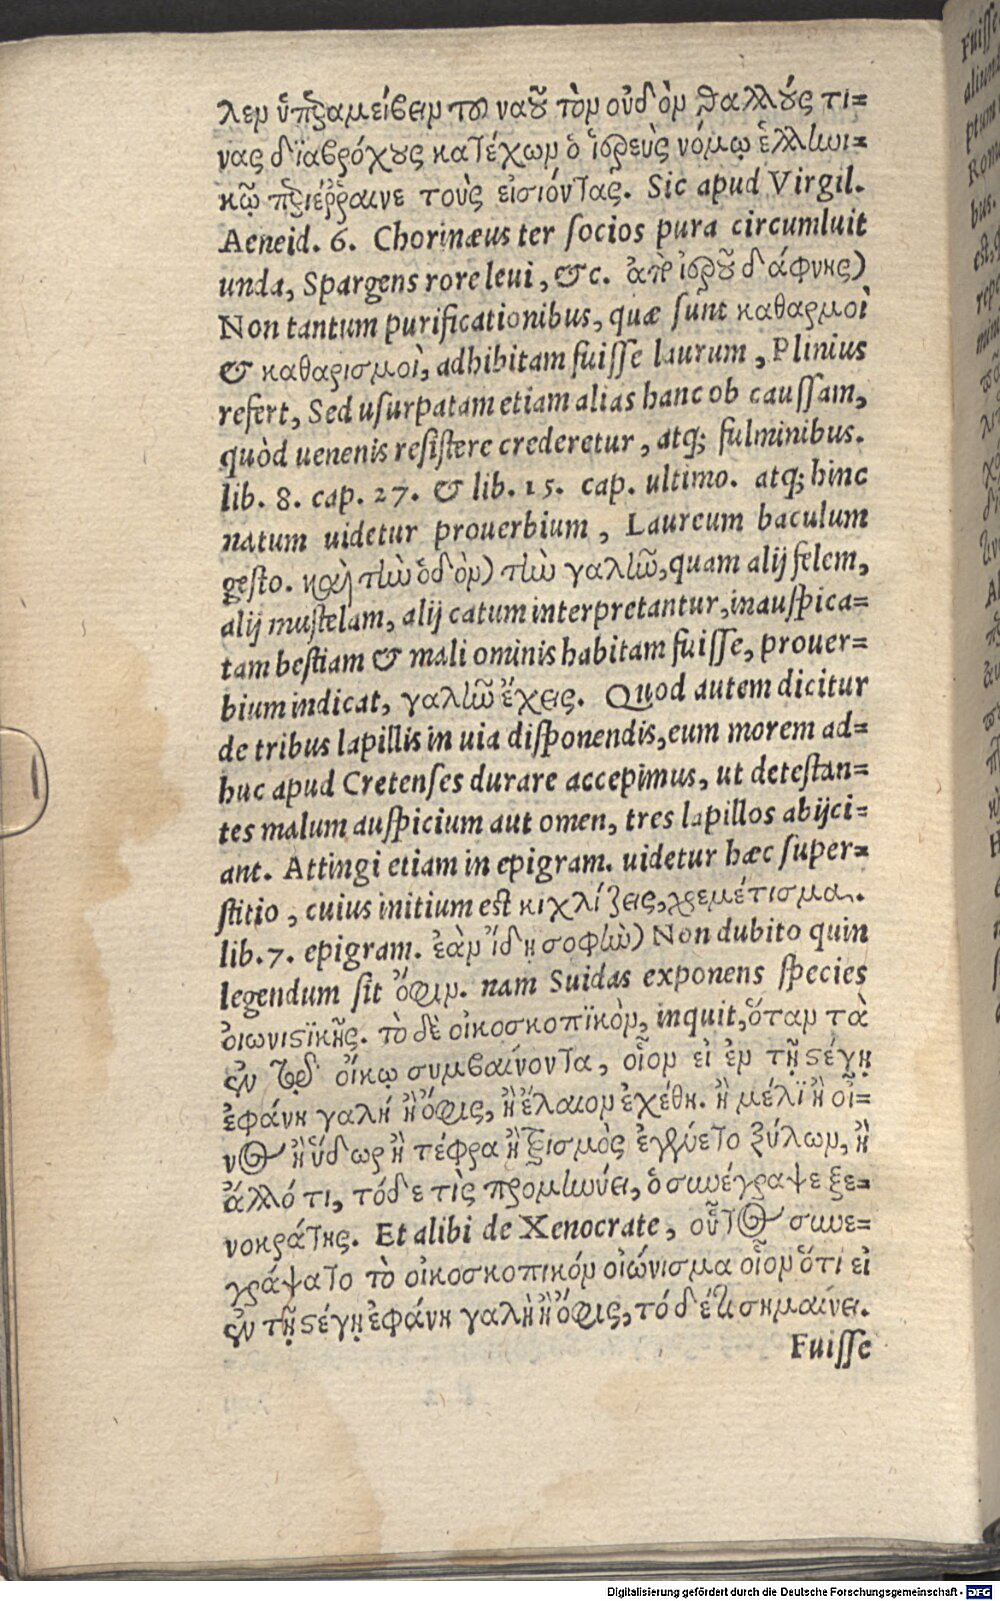 λεν ὑπεραμείβειν τοῦ ναοῦ τὸν οὐδὸν θαλλούς τι=
νας διαβρόχους κατέχων ὁ ἱερεὺς νόμῳ ἑλληνι=
κῷ περιέρραινε τοὺς εἰσιόντας. Sic apud Virgil.
Aeneid. 6. Chorinæus ter socios pura circumluit
unda, Spargens rore leui, &c. ἀπὸ ἱεροῦ δάφνης)
Non tantum purificationibus, quæ sunt καθαρμοὶ
& καθαρισμοὶ, adhibitam fuisse laurum, Plinius
refert, Sed usurpatam etiam alias hanc ob caussam,
quòd uenenis resistere crederetur, atq; fulminibus.
lib. 8. cap. 27. & lib. 15. cap. ultimo. atq; hinc
natum uidetur prouerbium, Laureum baculum
gesto. καὶ τὴν ὁδὸν) τὴν γαλῆν, quam alij felem,
alij mustelam, alij catum interpretantur, inauspica=
tam bestiam & mali ominis habitam fuisse, prouer=
bium indicat, γαλῆν ἔχεις. Quod autem dicitur
de tribus lapillis in uia disponendis, eum morem ad=
huc apud Cretenses durare accepimus, ut detestan=
tes malum auspicium aut omen, tres lapillos abijci=
ant. Attingi etiam in epigram. uidetur hæc super=
stitio, cuius initium est κιχλίζεις, χρεμέτισμα.
lib. 7. epigram. ἐὰν ἴδῃ σοφὴν) Non dubito quin
legendum sit ὄφιν. nam Suidas exponens species
οἰωνιστϊκῆς. τὸ δὲ οἰκοσκοπϊκὸν, inquit, ὅταν τὰ
ἐν τῷ οἴκῳ συμβαίνοντα, οἷον εἰ ἐν τῇ στέγῃ
ἐφάνη γαλῆ ἢ ὄφις, ἢ ἔλαιον ἐχέθη. ἢ μέλϊ ἢ οἶ=
νος ἢ ὕδωρ ἢ τέφρα ἢ τρισμὸς ἐγένετο ξύλων, ἢ
ἄλλό τι, τόδε τὶς προμηνύει, ὃ συνέγραψε ξε=
νοκράτης. Et alibi de Xenocrate, οὗτος συνε=
γράψατο τὸ οἰκοσκοπικόν οἰώνισμα οἷον ὅτι εἰ
ἐν τῇ στέγῃ ἐφάνη γαλὴ ἢ ὄφις, τόδέ τι σημαίνει.
Fuisse
Digitalisierung gefördert durch die Deutsche Forschungsgemeinschaft - DFG